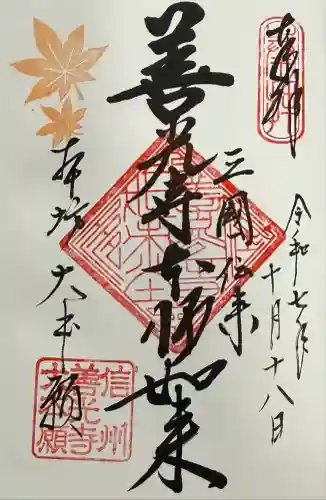 奉拝
令和七年
十月十八日
三國伝来
善光寺本師如来
本坊大本願
信州
善光寺
大本願